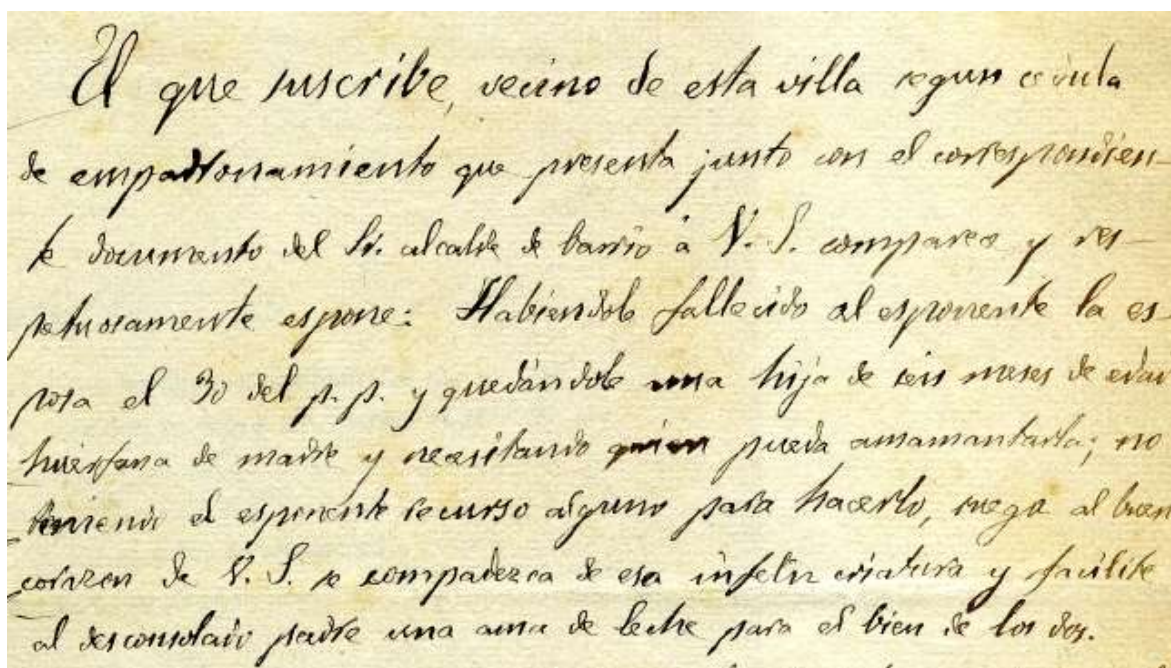 El que suscribe, vecino de esta villa segun cedula
de empadronamiento que presenta junto con el correspondien-
te documento del Sr. alcalde de barrio á V. S. comparece y res-
petuosamente espone: Habiendole fallecido al esponente la es-
posa el 30 del p. p. y quedándole una hija de seis meses de edad
huérfana de madre y necesitando quien pueda amamantarla; no
teniendo el esponente recurso alguno para hacerlo, ruega al buen
corazon de V. S. se compadezca de esa infeliz criatura y facilite
al desconsolado padre una ama de leche para el bien de los dos.